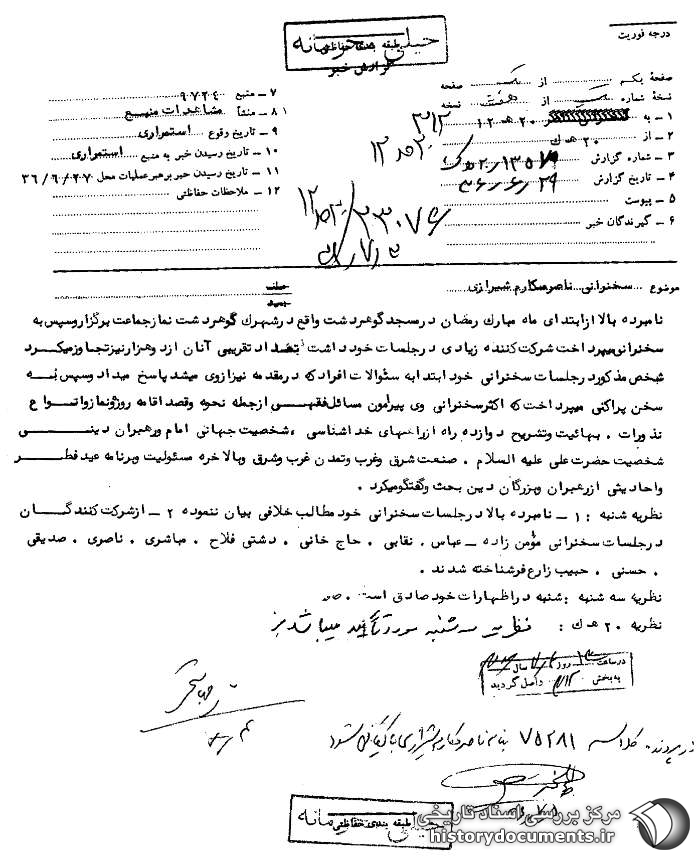 درجه فوریت
خیلی محرمانه
طبقه بندی حفاظتی
گزارش خبر
صفحه یک از یک صفحه
نسخه شماره یک از هفت نسخه
۱ ـ به ۲۰ هـ ۱۲ ۳۱۲
۲ ـ از ۲۰ هـ ک
۳ ـ شماره گزارش
۴ ـ تاریخ گزارش ۳۶/۶/۲۹
۵ ـ پیوست
۶ ـ گیرندگان خبر
۷ ـ منبع ۹۷۲۴
۸ ـ منشأ مشاهدات منبع
۹ ـ تاریخ وقوع استمراری
۱۰ ـ تاریخ رسیدن خبر به منبع استمراری
۱۱ ـ تاریخ رسیدن خبر برهبر عملیات محل ۳۶/۶/۲۷
۱۲ ـ ملاحظات حفاظتی
موضوع سخنرانی ناصر مکارم شیرازی
نامبرده بالا از ابتدای ماه مبارک رمضان در مسجد گوهردشت واقع در شهرک گوهردشت نماز جماعت برگزار و سپس به
سخنرانی میپرداخت شرکت کننده زیادی در جلسات خود داشت تعداد تقریبی آنان از دو هزار نیز تجاوز میکرد
شخص مذکور در جلسات سخنرانی خود ابتدا به سئوالات افراد که در مقدمه نیز از وی میشد پاسخ میداد و سپس به
سخن پراکنی میپرداخت که اکثر سخنرانی وی پیرامون مسائل فقهی از جمله نحوه و قصد اقامه روزه و نماز و انواع
نذورات . بهائیت و تشریح دوازده راه از راههای خداشناسی ، شخصیت جهانی امام و رهبران دینی
شخصیت حضرت علی علیه السلام . صنعت شرق و غرب و تمدن غرب و شرق و بالاخره مسئولیت و برنامه عید فطر
و احادیثی از رهبران و بزرگان دین بحث و گفتگو میکرد .
نظریه شنبه : ۱ ـ نامبرده بالا در جلسات سخنرانی خود مطالب خلافی بیان ننموده ۲ ـ از شرکت کنندگان
در جلسات سخنرانی مؤمن زاده ـ عباس . نقابی . حاج خانی . دشتی فلاح . مباشری . ناصری . صدیقی
. حسنی . حبیب زارع فر شناخته شدند .
نظریه سه شنبه : شنبه در اظهارات خود صادق است .
نظریه ۲۰ هـ ک : نظریه سه شنبه مورد تأیید میباشد
در ساعت روز سال
به بخش ۳۱۲ واصل گردید
در پرونده کلاسه ۷۵۲۸۱ بنام ناصر مکارم شیرازی بایگانی شود
طبقه بندی حفاظتی
خیلی محرمانه
مرکز بررسی اسناد تاریخی
historydocuments.ir